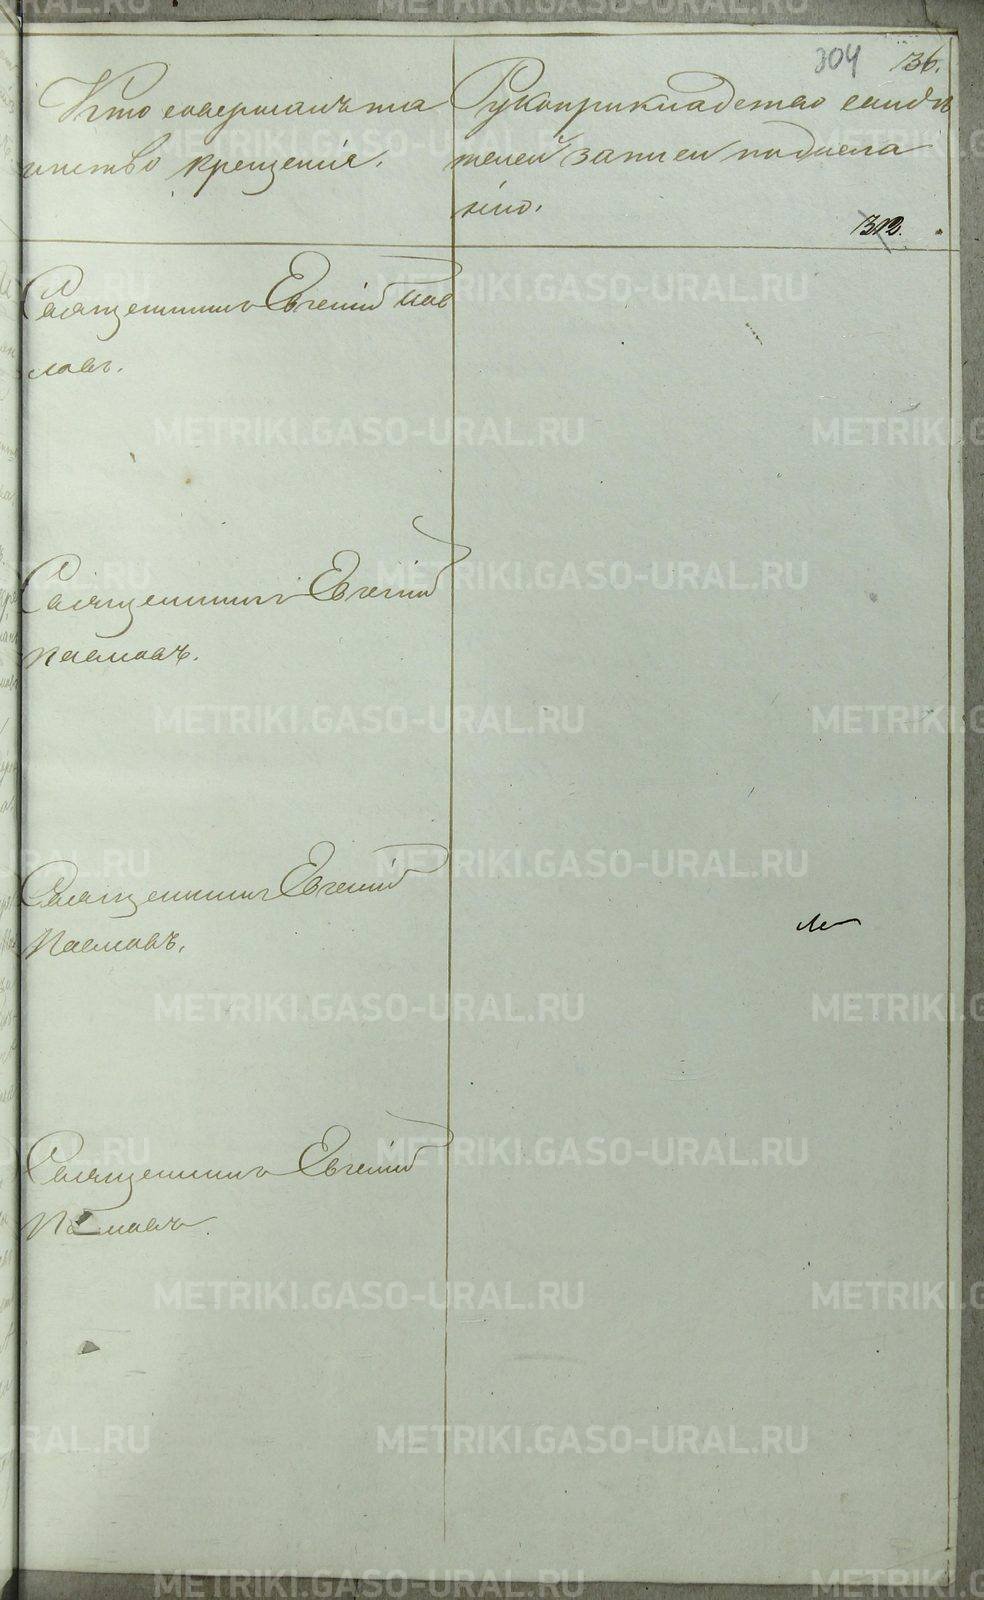 304 136.
Кто совершалъ та
инство крещенія.
Рукоприкладство свидѣ
телей записи по жела
нію.
312.
Священникъ Евгеній Пав
ловъ.
Священникъ Евгеній
Павловъ.
Священникъ Евгеній
Павловъ.
Священникъ Евгеній
Павловъ.
METRIKI.GASO-URAL.RU